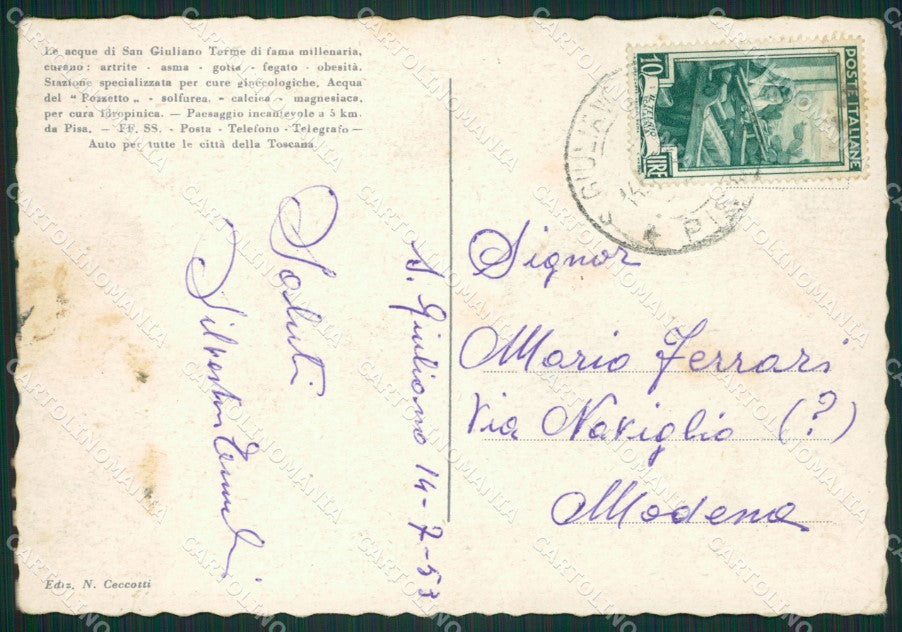 Le acque di San Giuliano Terme di fama millenaria,
curano: artrite - asma - gotta - fegato - obesità.
Stazione specializzata per cure ginecologiche. Acqua
del "Pozzetto„ - solfurea - calcica - magnesiaca,
per cura idropinica. — Paesaggio incantevole a 5 km.
da Pisa. — FF. SS. - Posta - Telefono - Telegrafo —
Auto per tutte le città della Toscana.
Saluti
S. Giuliano 14-7-53
Ediz. N. Ceccotti
10
LIRE
POSTE ITALIANE
PISA
Signor
Mario Ferrari
Via Naviglio (?)
Modena
CARTOLINOMANIA